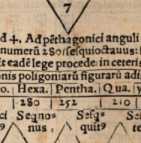 7
d 4. Ad pẽthagonici anguli
numerũ 280 sesquioctauus:
t eadẽ lege procede: in ceteris
onis poligoniarũ figurarũ adi
o. Hexa. Pentha. Qua.
280 252 210
ci Sesquo⁹ Sesq⁹
9 nus, quit⁹ te